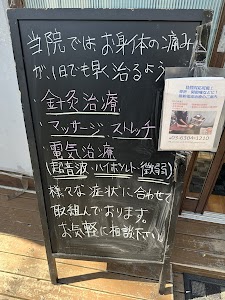 当院ではお身体の痛み
が、1日でも早く治るよう
針灸治療
・マッサージ・ストレッチ
・電気治療
(超音波・ハイボルト・微弱)
様々な症状に合わせて
取組んでおります。
お気軽に相談下さい
03-6304-1210